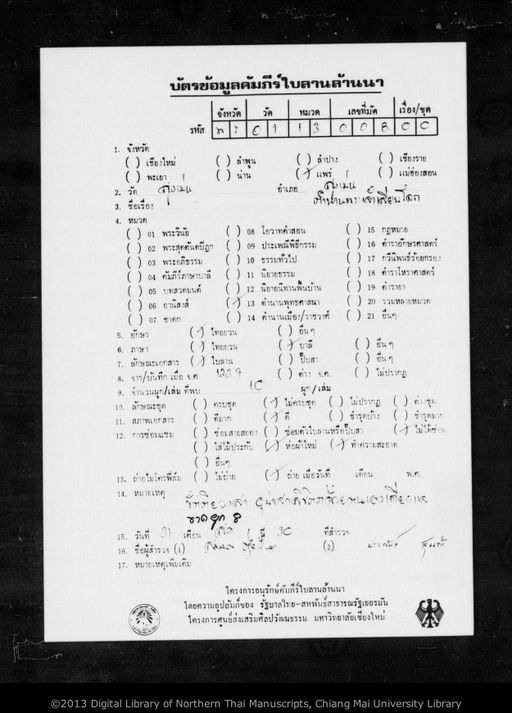 บัตรข้อมูลคัมภีร์ใบลานล้านนา
จังหวัด วัด หมวด เลขที่มัด เรื่อง/ชุด
รหัส 01 13 008 00
1. จังหวัด
( ) เชียงใหม่ ( ) ลำพูน ( ) ลำปาง ( ) เชียงราย
( ) พะเยา ( ) น่าน (/) แพร่ ( ) แม่ฮ่องสอน
2. วัด สูงเม่น อำเภอ สูงเม่น
3. ชื่อเรื่อง ตำนานพระเจ้าเลียบโลก
4. หมวด
( ) 01 พระวินัย ( ) 08 โอวาทคำสอน ( ) 15 กฎหมาย
( ) 02 พระสุตตันตปิฎก ( ) 09 ประเพณีพิธีกรรม ( ) 16 ตำราอักษรศาสตร์
( ) 03 พระอภิธรรม ( ) 10 ธรรมทั่วไป ( ) 17 กวีนิพนธ์ร้อยกรอง
( ) 04 คัมภีร์ภาษาบาลี ( ) 11 นิยายธรรม ( ) 18 ตำราโหราศาสตร์
( ) 05 บทสวดมนต์ ( ) 12 นิยายนิทานพื้นบ้าน ( ) 19 ตำรายา
( ) 06 อานิสงส์ (/) 13 ตำนานพุทธศาสนา ( ) 20 รวมหลายหมวด
( ) 07 ชาดก ( ) 14 ตำนานเมือง/ราชวงศ์ ( ) 21 อื่นๆ
5. อักษร (/) ไทยยวน ( ) อื่นๆ
6. ภาษา (/) ไทยยวน (/) บาลี ( ) อื่นๆ
7. ลักษณะเอกสาร (/) ใบลาน ( ) ปั๊บสา ( ) อื่นๆ
8. จาร/บันทึก เมื่อ จ.ศ. ( ) ต่าง จ.ศ. ( ) ไม่ปรากฏ
9. จำนวนผูก/เล่ม ที่พบ 10 ผูก/เล่ม
10. ลักษณะชุด ( ) ครบชุด (/) ไม่ครบชุด ( ) ไม่ปรากฏ ( ) ต่างชุด
11. สภาพเอกสาร ( ) ดีมาก (/) ดี ( ) ชำรุดบ้าง ( ) ชำรุดมาก
12. การซ่อมแซม ( ) ซ่อมสายสยอง ( ) ซ่อมตัวใบลานหรือปั๊บสา (/) ไม่ได้ซ่อม
( ) ใส่ไม้ประกับ (/) ห่อผ้าใหม่ (/) ทำความสะอาด
( ) อื่นๆ
13. ถ่ายไมโครฟิล์ม ( ) ไม่ถ่าย (/) ถ่าย เมื่อวันที่ เดือน พ.ศ.
14. หมายเหตุ
ขาดผูก 8
15. วันที่ 31 เดือน ปี 30 ที่สำรวจ
16. ชื่อผู้สำรวจ (1) (2)
17. หมายเหตุเพิ่มเติม
โครงการอนุรักษ์คัมภีร์ใบลานล้านนา
โดยความอุปถัมภ์ของ รัฐบาลไทย-สหพันธ์สาธารณรัฐเยอรมัน
โครงการศูนย์ส่งเสริมศิลปวัฒนธรรม มหาวิทยาลัยเชียงใหม่
©2013 Digital Library of Northern Thai Manuscripts, Chiang Mai University Library